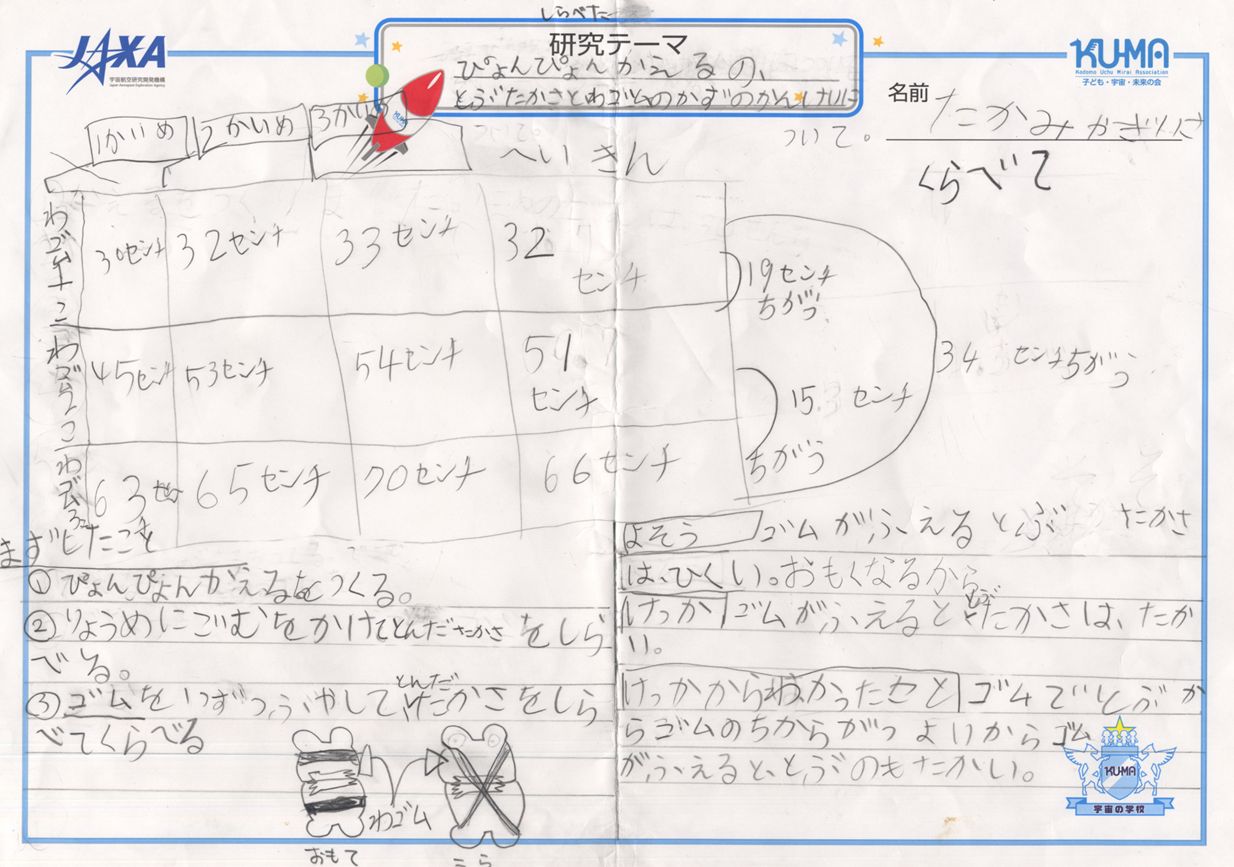 しらべた
JAXA
宇宙航空研究開発機構
Japan Aerospace Exploration Agency
研究テーマ
ぴょんぴょんかえるの、
とぶたかさとわゴムのかずのかんけいに
ついて。
KUMA
Kodomo Uchu Mirai Association
子ども・宇宙・未来の会
名前
くらべて
1かいめ 2かいめ 3かいめ へいきん
わゴム一こ 30センチ 32センチ 33センチ 32センチ
19センチちがう
わゴム2こ 45センチ 53センチ 54センチ 51.センチ
34.センチちがう
15.3センチちがう
わゴム3こ 63センチ 65センチ 70センチ 66センチ
まずしたこと
①ぴょんぴょんがえるをつくる。
②りょうめにごむをかけてとんだたかさをしら
べる。
③ゴムを1つずつふやしてとんだたかさをしら
べてくらべる
わゴム
おもて
うら
よそう ゴムがふえるととぶたかさ
は、ひくい。おもくなるから
けっか ゴムがふえるととぶたかさは、たか
い。
けっかからわかったこと ゴムでとぶか
らゴムのちからがつよいからゴム
がふえると、とぶのもたかい。
KUMA
宇宙の学校